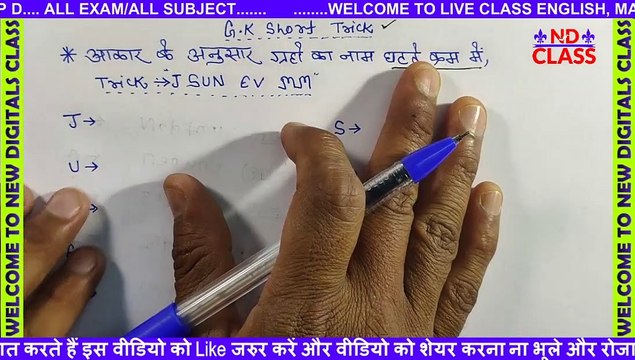 P D.... ALL EXAM/ALL SUBJECT....... ..........WELCOME TO LIVE CLASS ENGLISH, MA
G.K Short Trick ✓
* आकार के अनुसार ग्रहों का नाम घटते क्रम में,
Trick :→ J SUN EV MM"
J →
S →
U →
→
ND
CLASS
WELCOME TO NEW DIGITALS CLASS
WELCOME TO NEW DIGITALS CLASS
ात करते हैं इस वीडियो को Like जरुर करें और वीडियो को शेयर करना ना भूले और रोजा